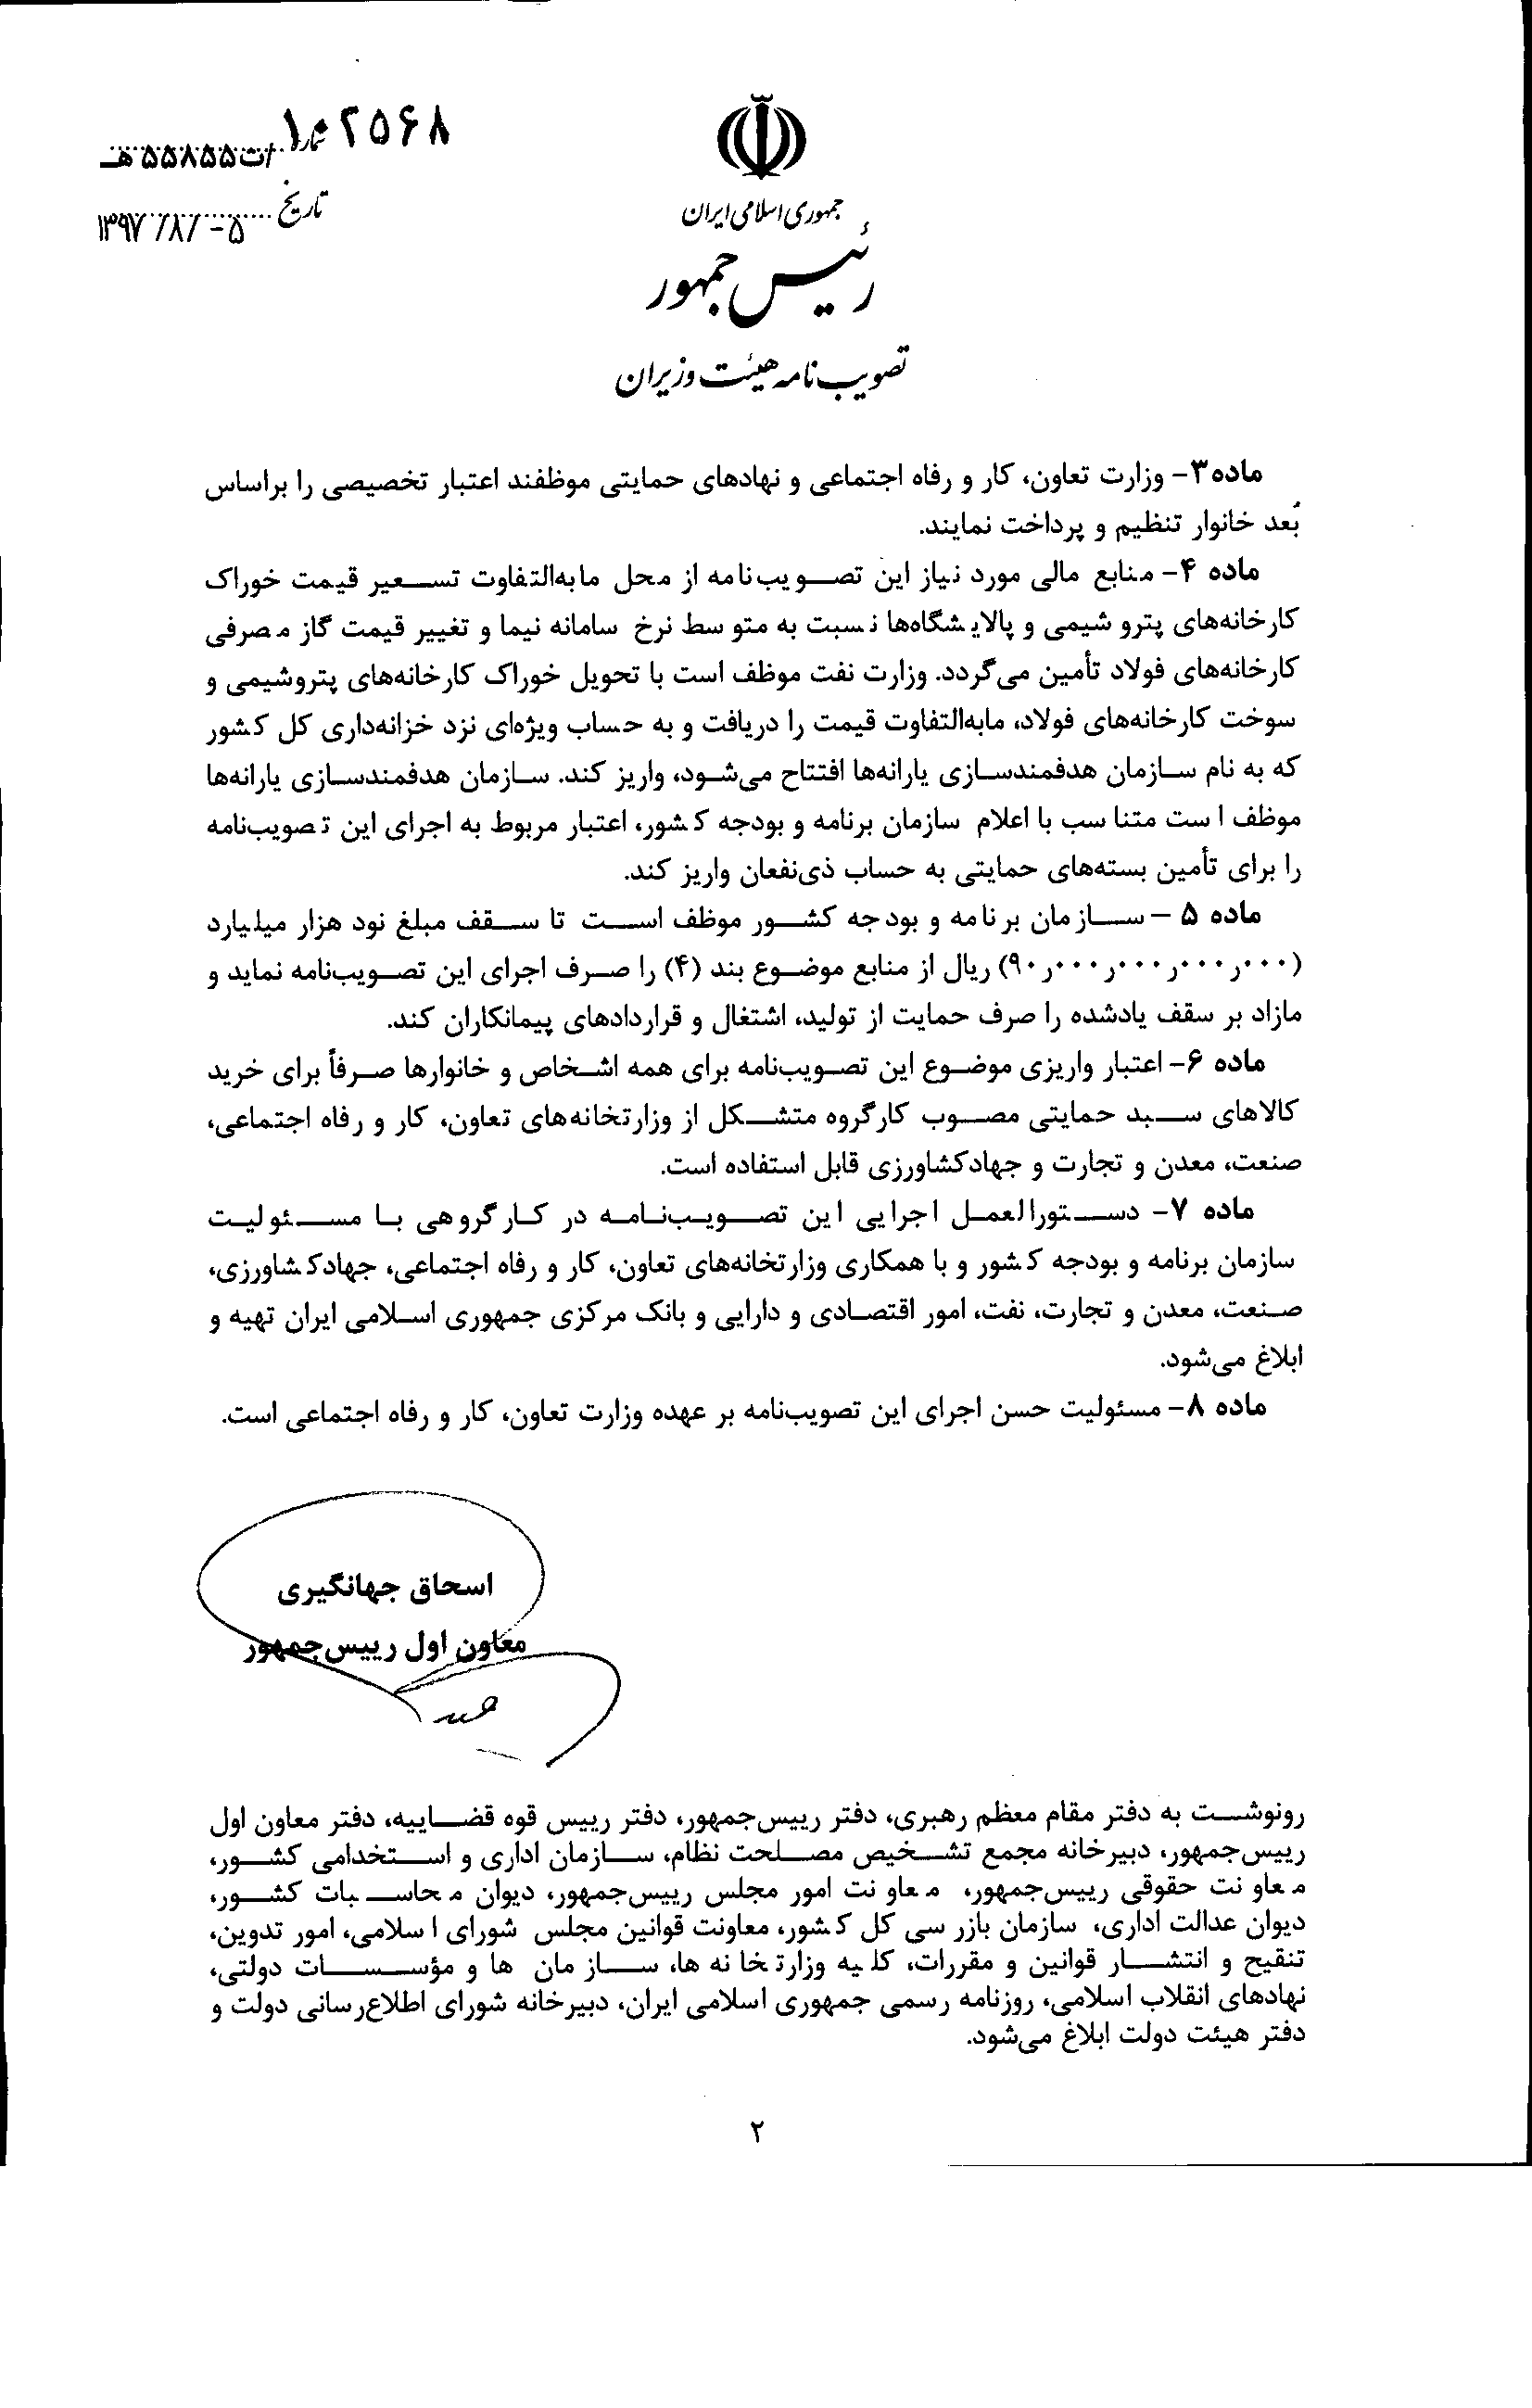 ۱۰۲۵۶۸
شماره /ت۵۵۸۵۵هـ
تاریخ ۱۳۹۷/۸/-۵
جمهوری اسلامی ایران
رئیس جمهور
تصویب نامه هیئت وزیران
ماده۳- وزارت تعاون، کار و رفاه اجتماعی و نهادهای حمایتی موظفند اعتبار تخصیصی را براساس
بُعد خانوار تنظیم و پرداخت نمایند.
ماده ۴- منابع مالی مورد نیاز این تصویب‌نامه از محل مابه‌التفاوت تسعیر قیمت خوراک
کارخانه‌های پتروشیمی و پالایشگاه‌ها نسبت به متوسط نرخ سامانه نیما و تغییر قیمت گاز مصرفی
کارخانه‌های فولاد تأمین می‌گردد. وزارت نفت موظف است با تحویل خوراک کارخانه‌های پتروشیمی و
سوخت کارخانه‌های فولاد، مابه‌التفاوت قیمت را دریافت و به حساب ویژه‌ای نزد خزانه‌داری کل کشور
که به نام سازمان هدفمندسازی یارانه‌ها افتتاح می‌شود، واریز کند. سازمان هدفمندسازی یارانه‌ها
موظف است متناسب با اعلام سازمان برنامه و بودجه کشور، اعتبار مربوط به اجرای این تصویب‌نامه
را برای تأمین بسته‌های حمایتی به حساب ذی‌نفعان واریز کند.
ماده ۵ – سازمان برنامه و بودجه کشور موظف است تا سقف مبلغ نود هزار میلیارد
(۹۰ر۰۰۰ر۰۰۰ر۰۰۰ر۰۰۰) ریال از منابع موضوع بند (۴) را صرف اجرای این تصویب‌نامه نماید و
مازاد بر سقف یادشده را صرف حمایت از تولید، اشتغال و قراردادهای پیمانکاران کند.
ماده ۶- اعتبار واریزی موضوع این تصویب‌نامه برای همه اشخاص و خانوارها صرفاً برای خرید
کالاهای سبد حمایتی مصوب کارگروه متشکل از وزارتخانه‌های تعاون، کار و رفاه اجتماعی،
صنعت، معدن و تجارت و جهادکشاورزی قابل استفاده است.
ماده ۷- دستورالعمل اجرایی این تصویب‌نامه در کارگروهی با مسئولیت
سازمان برنامه و بودجه کشور و با همکاری وزارتخانه‌های تعاون، کار و رفاه اجتماعی، جهادکشاورزی،
صنعت، معدن و تجارت، نفت، امور اقتصادی و دارایی و بانک مرکزی جمهوری اسلامی ایران تهیه و
ابلاغ می‌شود.
ماده ۸- مسئولیت حسن اجرای این تصویب‌نامه بر عهده وزارت تعاون، کار و رفاه اجتماعی است.
اسحاق جهانگیری
معاون اول رییس‌جمهور
رونوشت به دفتر مقام معظم رهبری، دفتر رییس‌جمهور، دفتر رییس قوه قضاییه، دفتر معاون اول
رییس‌جمهور، دبیرخانه مجمع تشخیص مصلحت نظام، سازمان اداری و استخدامی کشور،
معاونت حقوقی رییس‌جمهور، معاونت امور مجلس رییس‌جمهور، دیوان محاسبات کشور،
دیوان عدالت اداری، سازمان بازرسی کل کشور، معاونت قوانین مجلس شورای اسلامی، امور تدوین،
تنقیح و انتشار قوانین و مقررات، کلیه وزارتخانه ها، سازمان ها و مؤسسات دولتی،
نهادهای انقلاب اسلامی، روزنامه رسمی جمهوری اسلامی ایران، دبیرخانه شورای اطلاع‌رسانی دولت و
دفتر هیئت دولت ابلاغ می‌شود.
۲